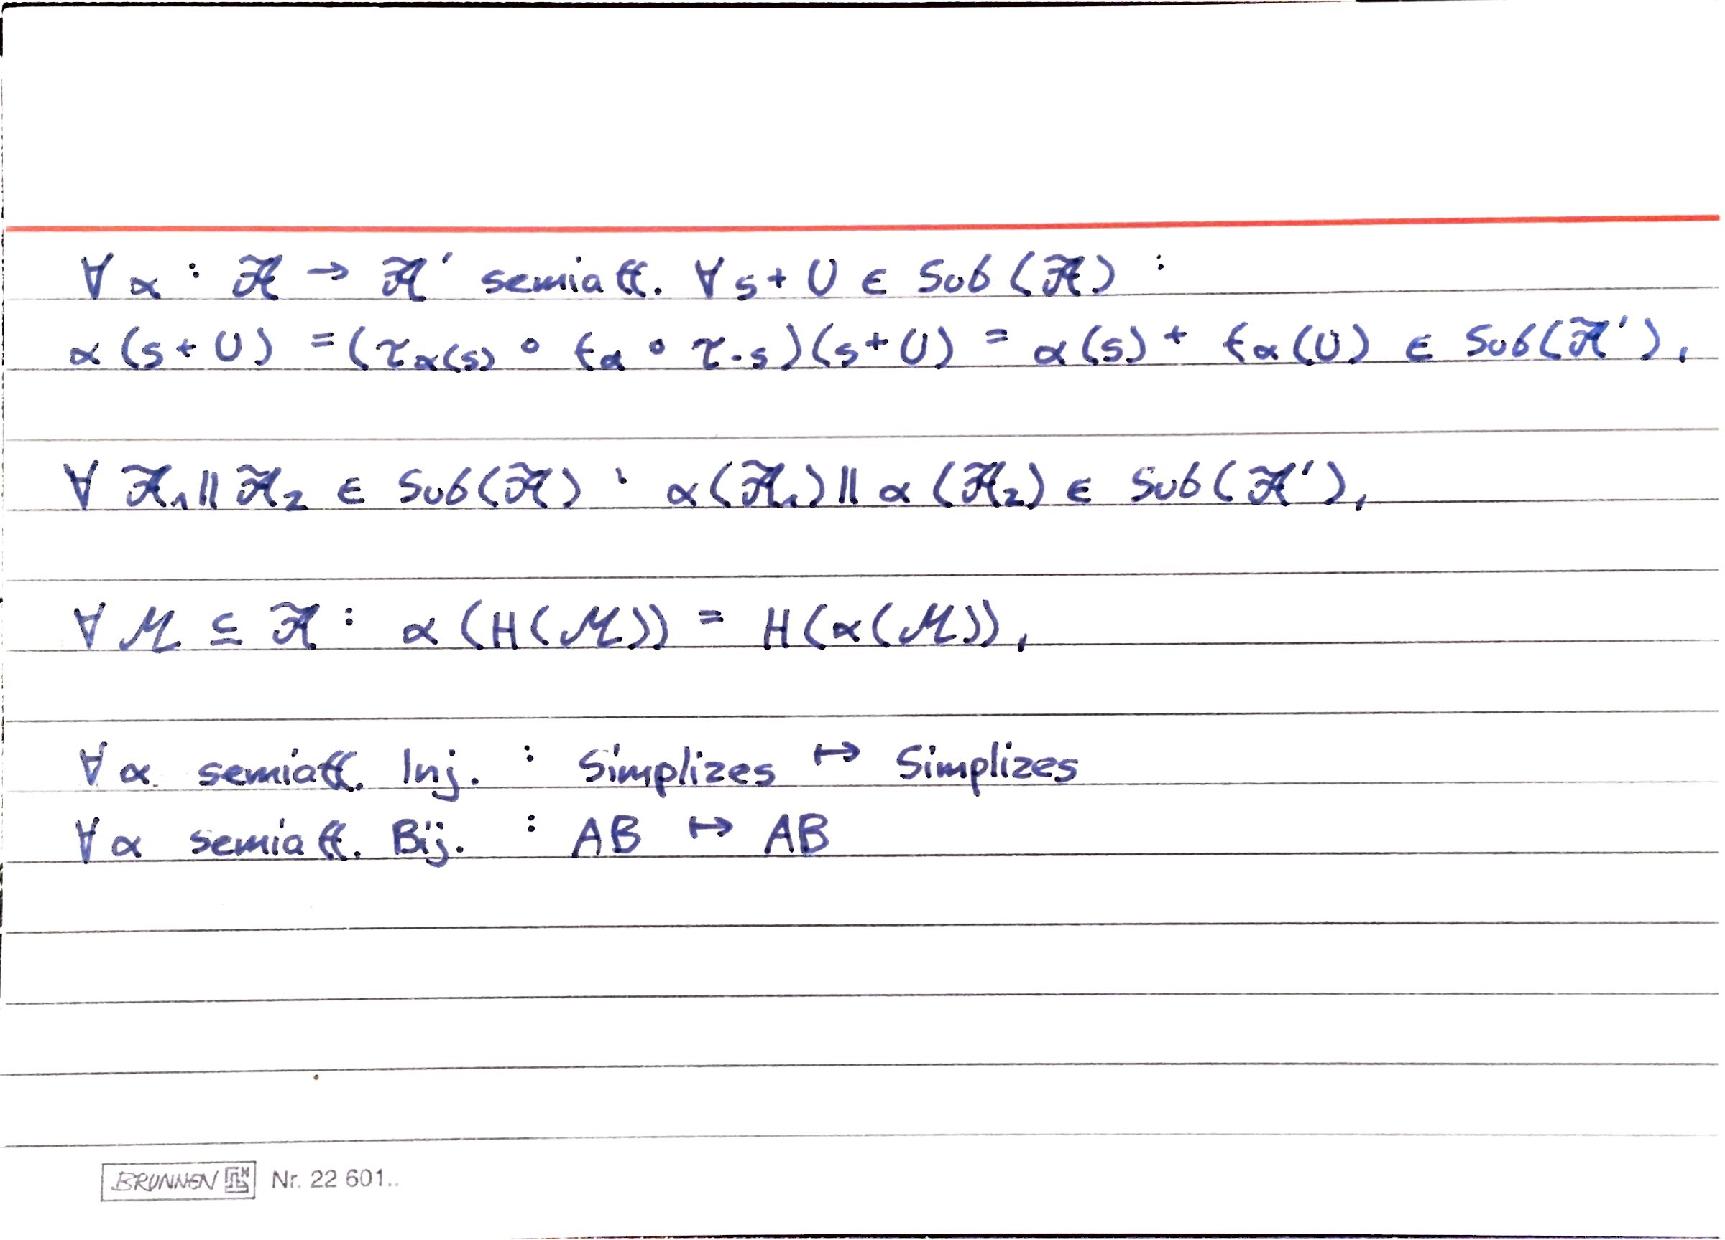 ∀ α : 𝓐 → 𝓐' semiaff. ∀ s + U ∈ Sub(𝓐) :
α(s + U) = (τ_α(s) ∘ f_α ∘ τ_-s)(s + U) = α(s) + f_α(U) ∈ Sub(𝓐'),
∀ 𝓐₁ ∥ 𝓐₂ ∈ Sub(𝓐) : α(𝓐₁) ∥ α(𝓐₂) ∈ Sub(𝓐'),
∀ 𝓜 ⊆ 𝓐 : α(H(𝓜)) = H(α(𝓜)),
∀ α semiaff. Inj. : Simplizes ↦ Simplizes
∀ α semiaff. Bij. : AB ↦ AB
BRUNNEN Nr. 22 601..